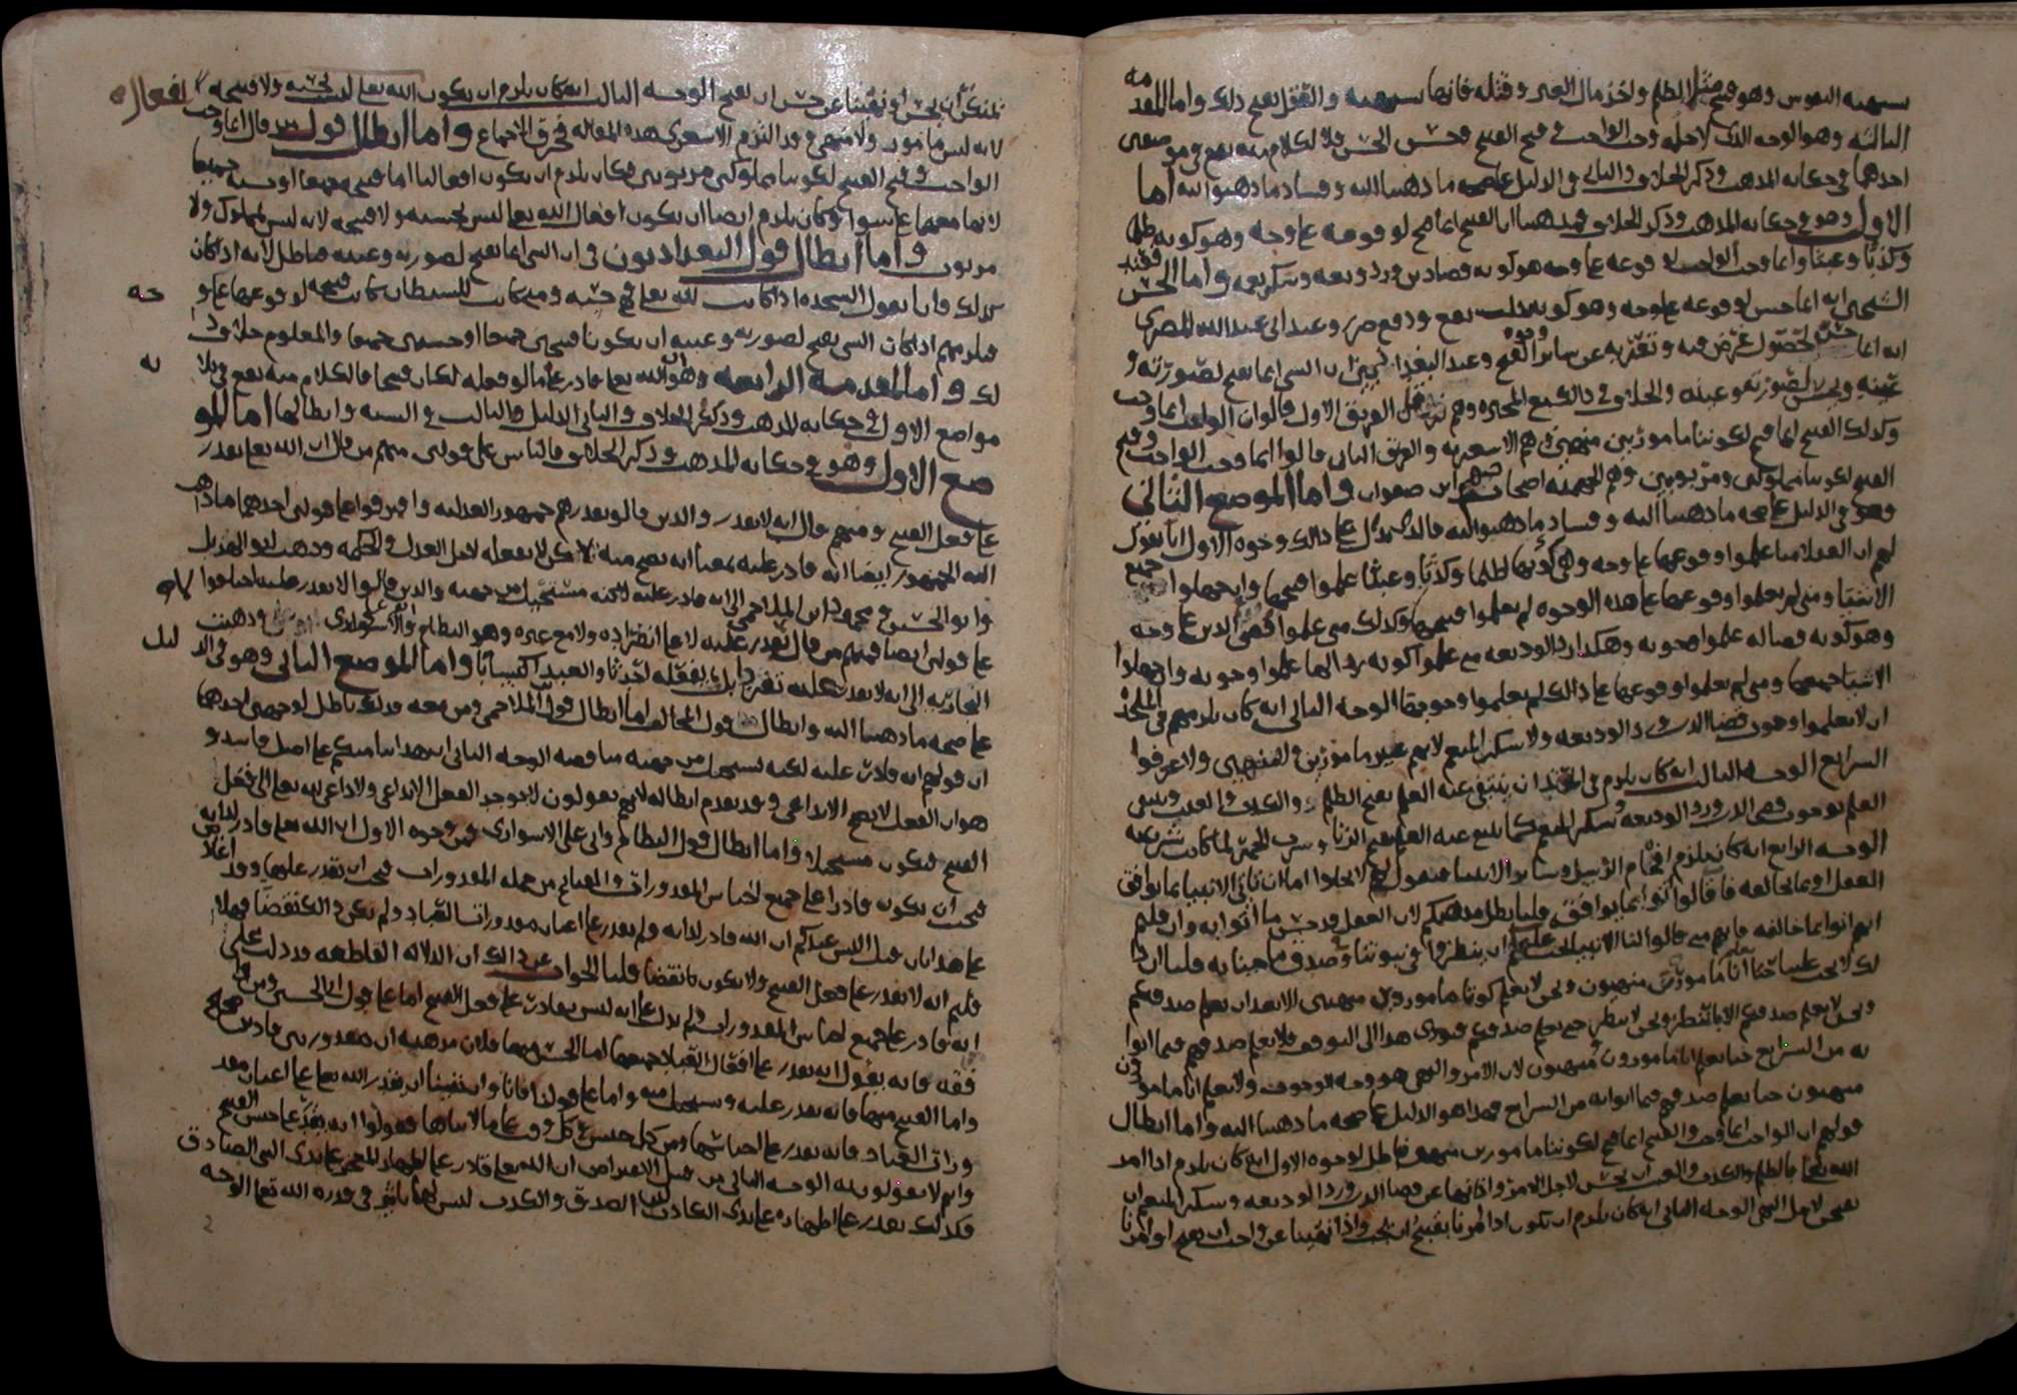 النفوس وهو قبيح مثل الظلم واخذ مال الغير وقتله فانها والعقل يقبح ذلك واما المقدمة
الثالثة وهو الوجه الذي لاجله وجب الواجب وقبح القبيح وحسن الحسن فالكلام منه يقع في موضعين
احدهما في حكاية المذهب وذكر الخلاف والثاني في الدليل على صحة ما ذهبنا اليه وفساد ما ذهبوا اليه اما
الاول وهو في حكاية المذهب وذكر الخلاف فمذهبنا ان القبيح انما قبح لوقوعه على وجه وهو كونه ظلما
وكذبا وعبثا وانما وجب الواجب لوقوعه على وجه هو كونه قضا دين ورد وديعة وشكر نعمة واما الحسن فعند
الشيخين انه انما حسن لوقوعه على وجه وهو كونه جلب نفع ودفع ضرر وعند ابي عبدالله البصري
انه انما حسن لحصول غرض فيه وتعريه عن سائر وجوه القبح وعند البغداديين ان الشي انما يقبح لصورته و
عينه ويحسن لصورته وعينه والخلاف في ذلك مع المجبرة وهم الفريق الاول قالوا ان الواجب انما وجب
وكذلك القبيح انما قبح لكوننا مامورين منهيين وهم الاشعرية والفريق الثاني قالوا انما وجب الواجب وقبح
القبيح لكوننا مملوكين ومربوبين وهم الجهمية اصحاب جهم ابن صفوان واما الموضع الثاني
وهو في الدليل على صحة ما ذهبنا اليه وفساد ما ذهبوا اليه فالذي يدل على ذلك وجوه الاول انا نقول
لهم ان العقلا متى علموا وقوعها على وجه وهي كونها ظلما وكذبا وعبثا علموا قبحها وان جهلوا جميع
الاشيا ومتى لم يعلموا وقوعها على هذه الوجوه لم يعلموا قبحها وكذلك متى علموا قضى الدين على وجه
وهو كونه قضا له علموا وجوبه وهكذا رد الوديعة متى علموا كونه ردا لها علموا وجوبه وان جهلوا
الاشيا جميعها ومتى لم يعلموا وقوعها على ذلك لم يعلموا وجوبها الوجه الثاني انه كان يلزمهم في الملحدة
ان لا يعلموا وجوب قضا الدين و رد الوديعة ولا شكر المنعم لانهم غير مامورين ولا منهيين ولا عرفوا
الشرايع الوجه الثالث انه كان يلزم في ان ينتفي عنه العلم بقبح الظلم والكذب والعبث وينتفي
العلم بوجوب قضى الدين ورد الوديعة وشكر المنعم كما ينتفي عنه العلم بقبح الزنا وشرب الخمر لما كانت شرعية
الوجه الرابع انه كان يلزم افحام الرسل وسائر الانبيا فنقول لهم لا يخلوا اما ان تاتي الانبيا بما يوافق
العقل او بما يخالفه فان قالوا اتوا بما يوافق قلنا بطل مذهبكم لان العقل قد حسن ما اتوا به وان قلتم
انهم اتوا بما خالفه فانهم متى قالوا لنا الانبيا يجب عليكم ان ينظروا في نبوتنا وصدق ما جئنا به قلنا ان ذا
لك لا يجب علينا حتى نعلم انا مامورين منهيون ونحن لا نعلم كوننا مامورين منهيين الا بعد ان نعلم صدقكم
ونحن لا نعلم صدقكم الا بالنظر ونحن لا ننظر حتى نعلم صدقكم فيودي هذا الى التوقف فلا نعلم صدقهم فيما اتوا
به من الشرايع حتى نعلم انا مامورون منهيون لان الامر والنهي هو وجه الوجوب ولا نعلم انا مامورون
منهيون حتى نعلم صدقهم فيما اتوا به من الشرايع فهذا هو الدليل على صحة ما ذهبنا اليه واما ابطال
قولهم ان الواجب انما وجب والقبيح انما قبح لكوننا مامورين منهيين فباطل لوجوه الاول انه كان يلزم اذا امر
الله تعالى بالظلم والكذب والعبث ان يحسن لاجل الامر واذا نهانا عن قضا الدين ورد الوديعة وشكر المنعم ان
يقبح لاجل النهي الوجه الثاني انه كان يلزم ان يكون اذا امرنا بقبيح ان يجب واذا نهينا عن واجب ان يقبح او امرنا
ان يحسن او نهينا عن حسن ان يقبح الوجه الثالث انه كان يلزم ان يكون الله تعالى ليس بحسنه ولا قبيحه افعاله
لانه ليس مامور ولا منهي وقد التزم الاشعري هذه المقالة فخرق الاجماع واما ابطال قول من قال انما وجب
الواجب وقبح القبيح لكوننا مملوكين مربوبين فكان يلزم ان يكون افعالنا اما قبيحه جميعها او حسنة جميعها
لانها معها على سوا وكان يلزم ايضا ان يكون افعال الله تعالى ليس بحسنه ولا قبيحه لانه ليس بمملوك ولا
مربوب واما ابطال قول البغداديون في ان الشي انما يقبح لصورته وعينه فباطل لانه اذا كان
كذلك فانا نقول السجدة اذا كانت لله تعالى فهي حسنه ومتى كانت للشيطان كانت قبيحه لوقوعها على و
جه
فيلزمهم اذا كان الشي يقبح لصورته وعينه ان يكونا قبيحين جميعا او حسنين جميعا والمعلوم خلاف ذا
لك واما المقدمة الرابعة وهو ان الله تعالى قادر على ما لو فعله لكان قبيحا فالكلام منه يقع في ثلا
ثه
مواضع الاول في حكاية المذهب وذكر الخلاف والثاني الدليل والثالث في الشبه وابطالها اما المو
ضع الاول وهو في حكاية المذهب وذكر الخلاف فالناس على قولين منهم من قال ان الله تعالى يقدر
على فعل القبيح ومنهم من قال انه لا يقدر والذين قالوا يقدر هم جمهور العدلية وافترقوا على قولين احدهما ما ذهب
اليه الجمهور ايضا انه قادر عليه بمعنى انه يصح منه لكن لا يفعله لاجل العدل والحكمة وذهب ابو الهذيل
وابو الحسين ومحمود ابن الملاحمي الى انه قادر عليه لكنه مستحيل من جهته والذين قالوا لا يقدر عليه اختلفوا
على قولين ايضا فمنهم من قال لا يقدر عليه لا على انفراده ولا مع غيره وهو النظام والاسواري وذهبت
النجارية الى انه لا يقدر عليه تفردا بل يفعله احداثا والعبد اكتسابا واما الموضع الثاني وهو في الد
ليل
على صحة ما ذهبنا اليه وابطال قول المخالف اما ابطال قول الملاحمي ومن معه فذلك باطل لوجهين احدهما
ان قولهم انه قادر عليه لكنه يستحيل من جهته مناقضة الوجه الثاني ان هذا بنا منكم على اصل فاسد و
هو ان الفعل لا يصح الا بداعي وقد تقدم ابطاله لانهم يقولون لا يوجد الفعل الا بداعي ولا داعي لله تعالى الى فعل
القبيح فيكون مستحيلا واما ابطال قول النظام وابي علي الاسواري فمن وجوه الاول ان الله تعالى قادر لذاته
فيجب ان يكون قادرا على جميع اجناس المقدورات والقبائح من جملة المقدورات فيجب ان يقدر عليها
على هذا فان قيل اليس عندكم ان الله قادر لذاته ولم يقدر على اعيان مقدورات العباد ولم يكن ذلك نقضا فهلا
قلتم انه لا يقدر على فعل القبيح ولا يكون نقضا قلنا الجواب عن ذلك ان الدلالة القاطعة قد دلت على
انه قادر على جميع اجناس المقدورات ولم يدل على انه ليس بقادر على فعل القبيح اما على قول ابي الحسين ومن
فقه فانه يقول انه يقدر على افعال العباد جميعها اما الحسن منها فلان مذهبه ان مقدور بين قادرين صحيح
واما القبيح منها فانه يقدر عليه ويستحيل منه واما على قولنا فانا وان نفينا ان يقدر الله تعالى على اعيان مقد
ورات العباد فانه يقدر على اجناسها ومن كل جنس في كل وقت على ما لا يتناهى فقولوا انه يقدر على جنس القبيح
وانتم لا تقولونه الوجه الثاني من قبل الاعتراض ان الله تعالى قادر على اظهار المعجز على يدي النبي الصادق
فكذلك يقدر على اظهاره على يدي الكاذب لان الصدق والكذب ليس لهما تاثير في قدرة الله تعالى الوجه